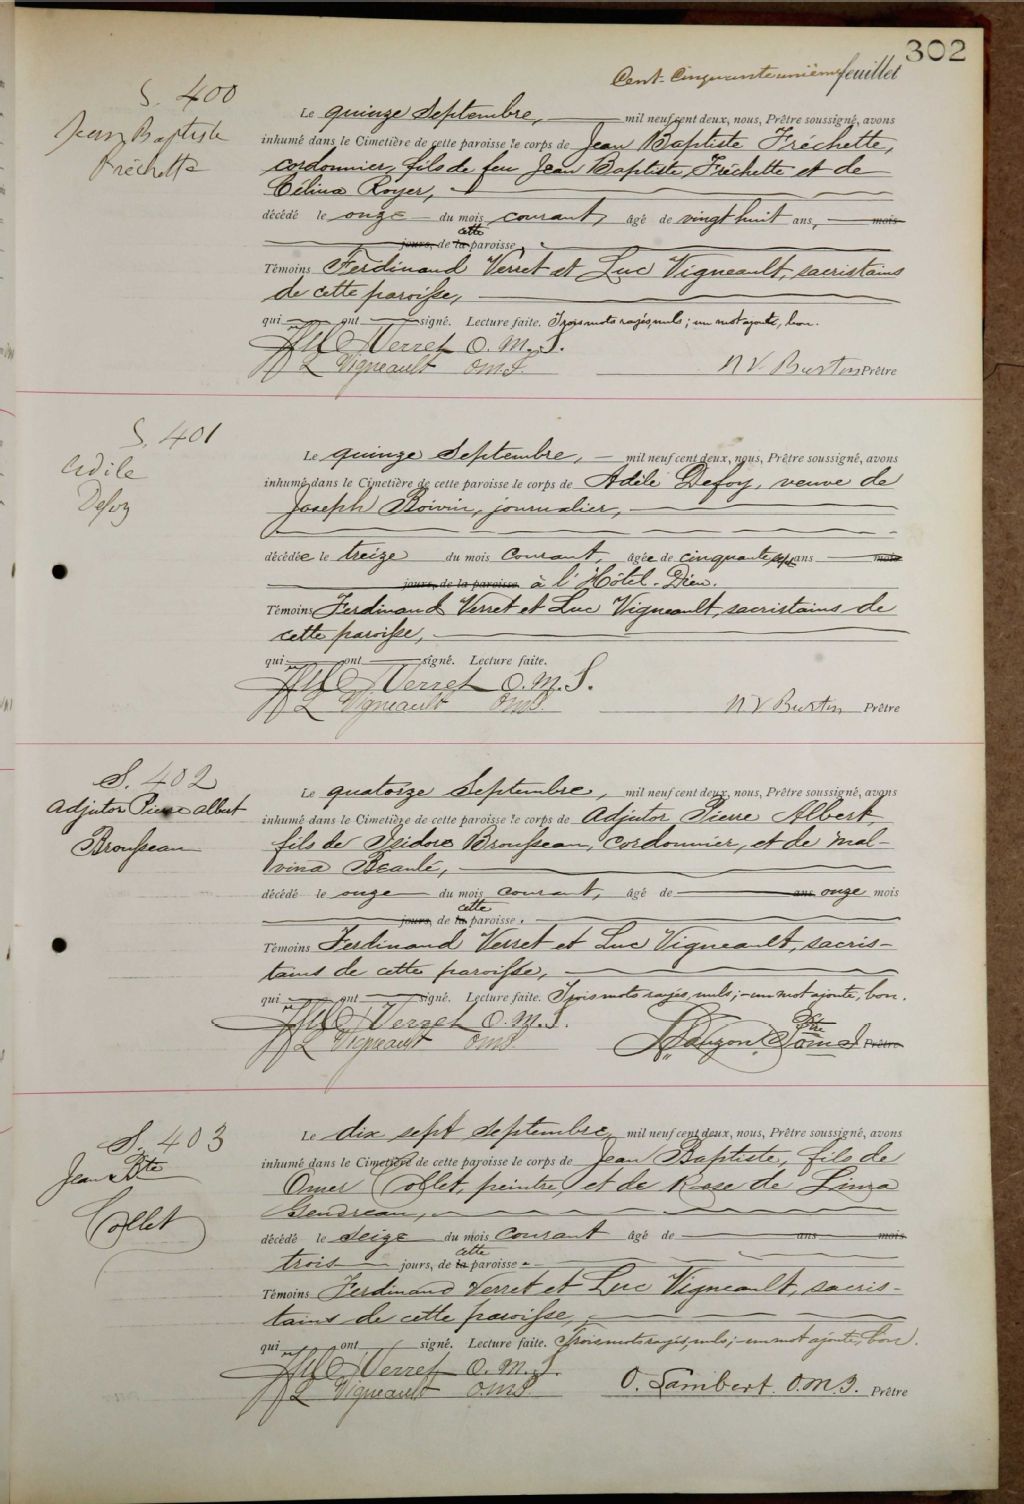 302
Cent-Cinquante unième feuillet
S. 400
Jean Baptiste
Fréchette
Le quinze Septembre, mil neuf cent deux, nous, Prêtre soussigné, avons
inhumé dans le Cimetière de cette paroisse le corps de Jean Baptiste Fréchette,
cordonnier, fils de feu Jean Baptiste Fréchette et de
Célina Royer,
décédé le onze du mois courant, âgé de vingt huit ans, mois
cette
jours, de la paroisse,
Témoins Ferdinand Verret et Luc Vigneault, sacristains
de cette paroisse,
qui ont signé. Lecture faite. Trois mots rayés, nuls; un mot ajouté, bon.
Verret O. M. S.
L Vigneault OMS.
N. V. Burtin Prêtre
S. 401
Adèle
Defoy
Le quinze Septembre, mil neuf cent deux, nous, Prêtre soussigné, avons
inhumé dans le Cimetière de cette paroisse le corps de Adèle Defoy, veuve de
Joseph Boivin, journalier,
décédée le treize du mois courant, âgée de cinquante sept ans mois
jours, de la paroisse. à l'Hôtel-Dieu.
Témoins Ferdinand Verret et Luc Vigneault, sacristains de
cette paroisse,
qui ont signé. Lecture faite.
Verret O. M. S.
L Vigneault OMS.
N. V. Burtin Prêtre
S. 402
Adjutor Pierre Albert
Brousseau
Le quatorze Septembre, mil neuf cent deux, nous, Prêtre soussigné, avons
inhumé dans le Cimetière de cette paroisse le corps de Adjutor Pierre Albert,
fils de Isidore Brousseau, Cordonnier, et de Mal-
vina Beaulé,
décédé le onze du mois courant, âgé de ans onze mois
cette
jours, de la paroisse,
Témoins Ferdinand Verret et Luc Vigneault, sacris-
tains de cette paroisse,
qui ont signé. Lecture faite. Trois mots rayés, nuls; un mot ajouté, bon.
Verret O. M. S.
L Vigneault OMS.
Lauzon Ptre O.M.I. Prêtre
S. 403
Jean Bte
Collet
Le dix sept Septembre, mil neuf cent deux, nous, Prêtre soussigné, avons
inhumé dans le Cimetière de cette paroisse le corps de Jean Baptiste, fils de
Omer Collet, peintre, et de Rose de Lima
Gendreau,
décédé le seize du mois courant âgé de ans mois
cette
trois jours, de la paroisse.
Témoins Ferdinand Verret et Luc Vigneault, sacris-
tains de cette paroisse,
qui ont signé. Lecture faite. Trois mots rayés, nuls; un mot ajouté, bon.
Verret O. M. S.
L Vigneault O.M.S.
O. Lambert. O.M.I. Prêtre